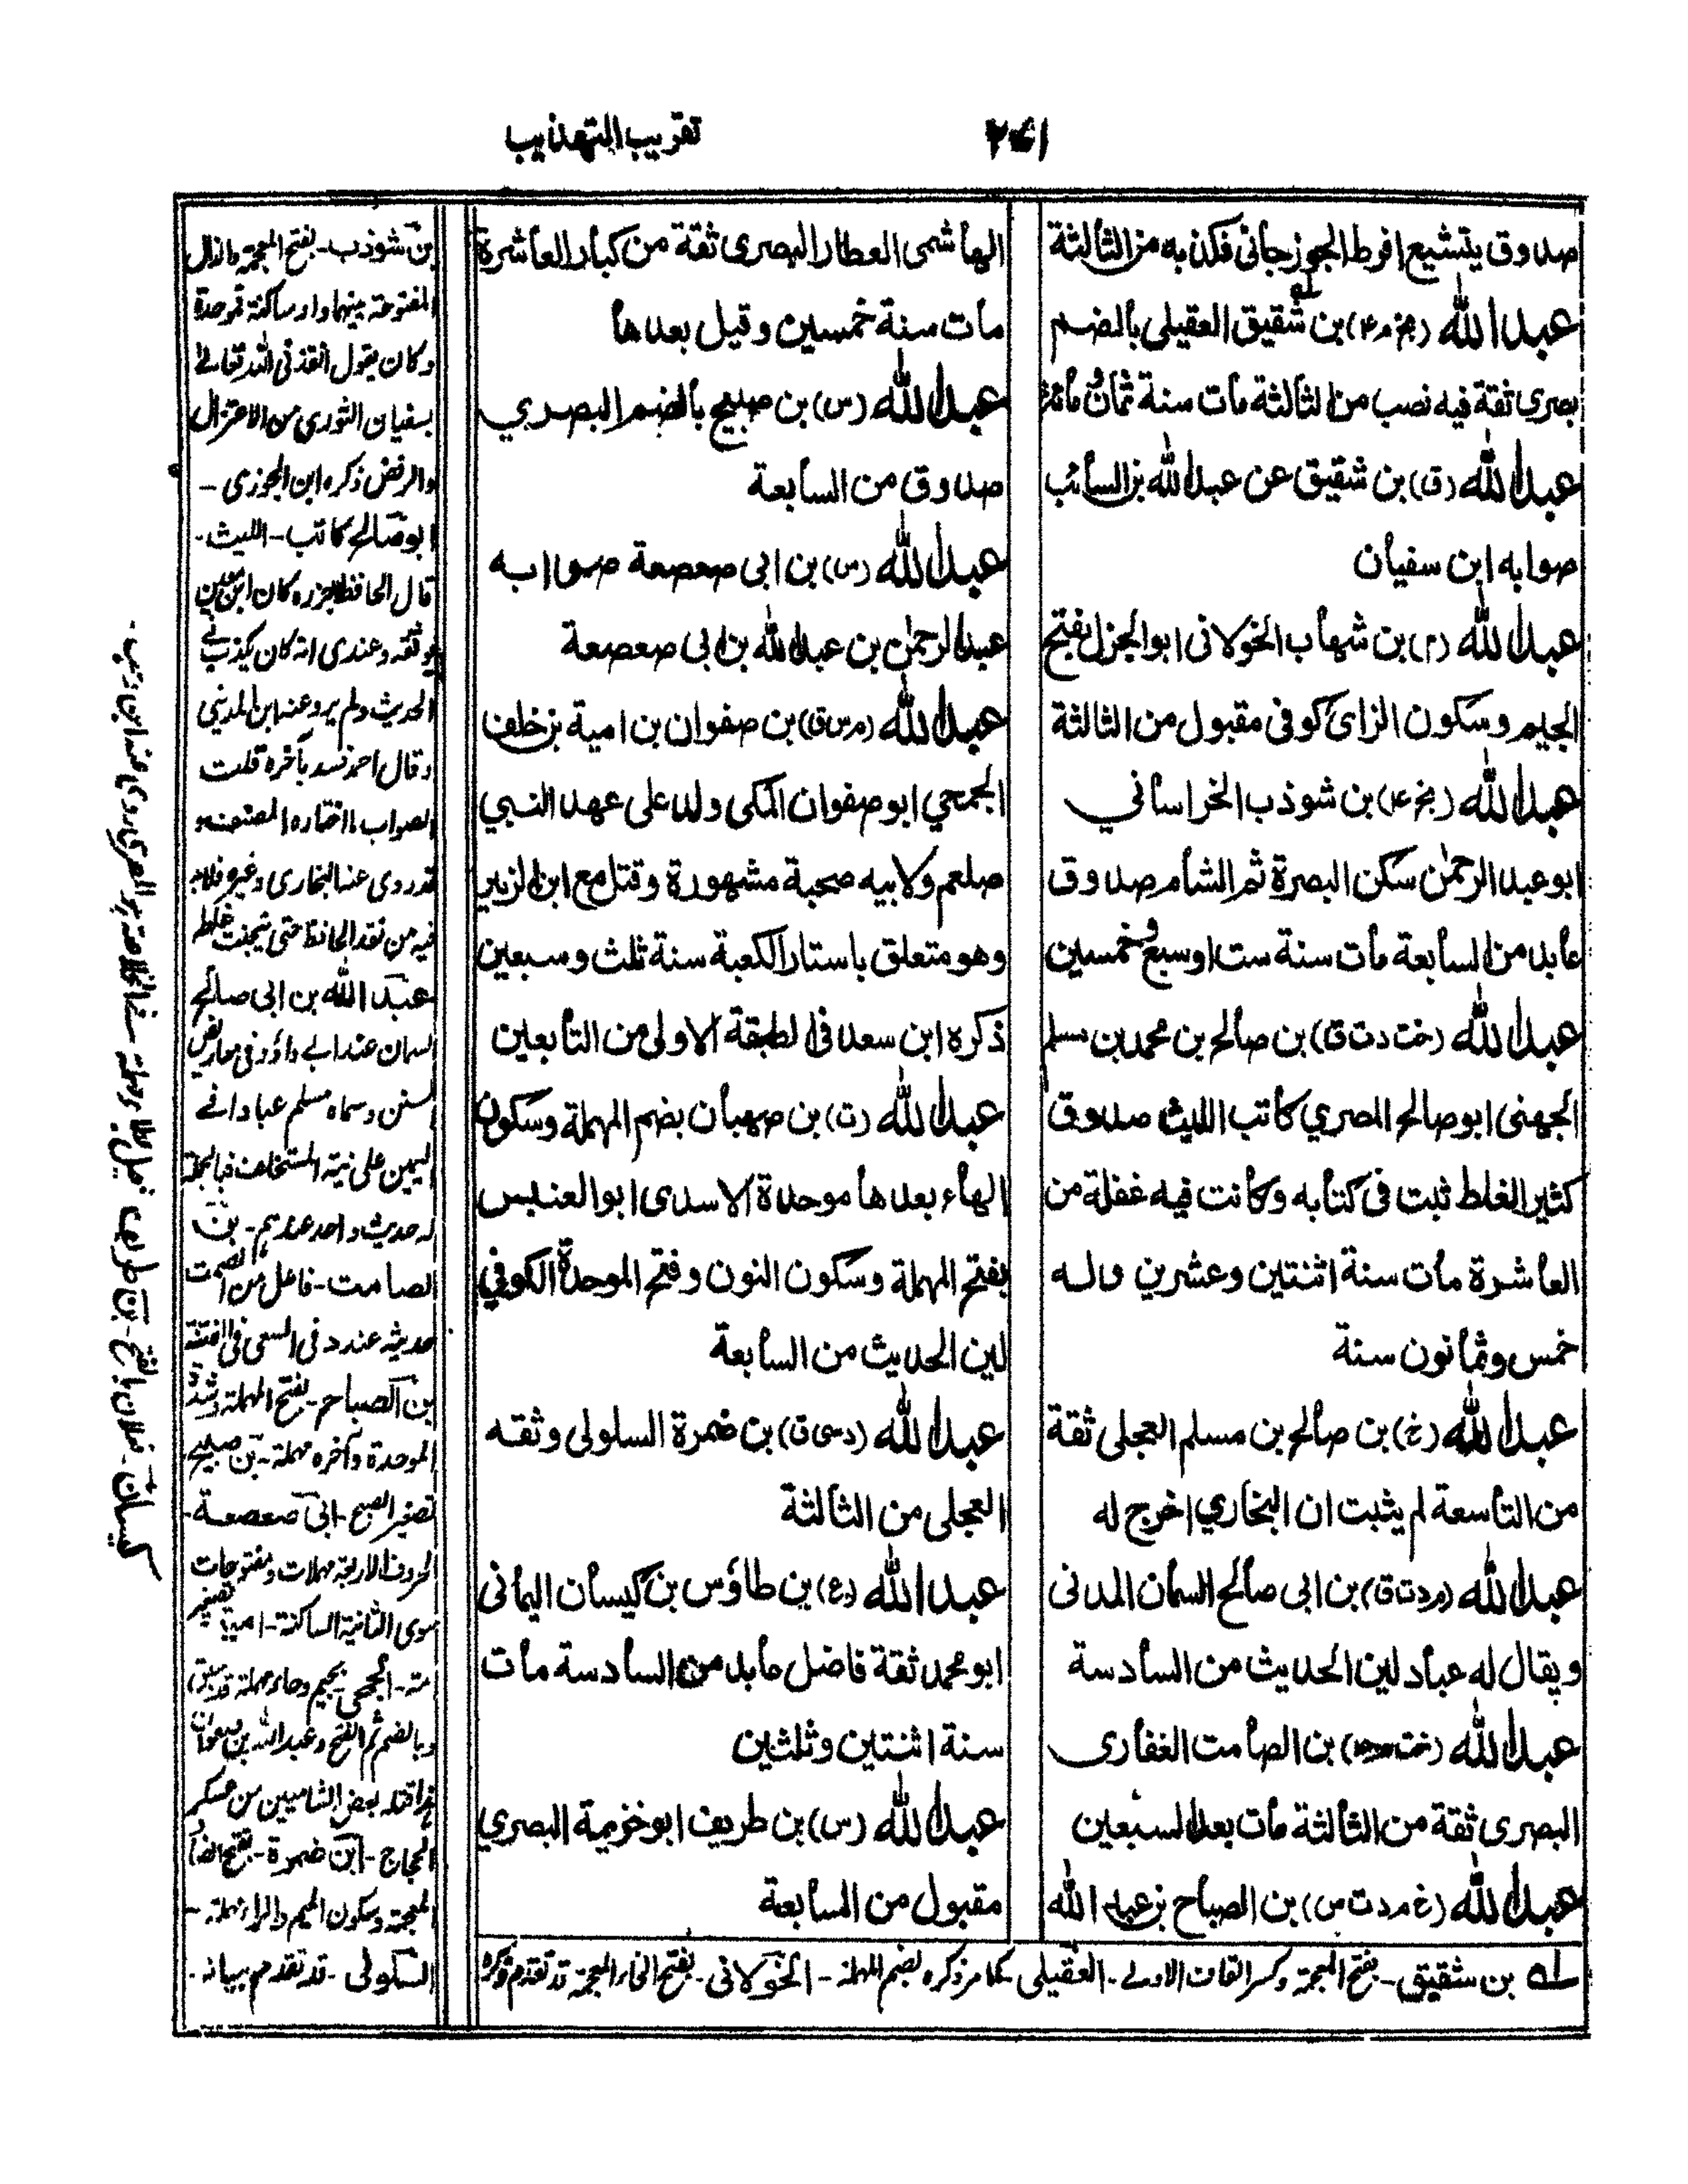 تقريب التهذيب
٢٤١
صدوق يتشيع افرط الجوزجانى فكذبه من الثالثة
عبد الله (بخ م ٤) بن شقيق العقيلى بالضم
بصرى ثقة فيه نصب من الثالثة مات سنة ثمان ومائة
عبد الله (ق) بن شقيق عن عبد الله بن السائب
صوابه ابن سفيان
عبد الله (م) بن شهاب الخولانى ابو الجزل بفتح
الجيم وسكون الزاى كوفى مقبول من الثالثة
عبد الله (بخ ٤) بن شوذب الخراساني
ابو عبد الرحمٰن سكن البصرة ثم الشام صدوق
عابد من السابعة مات سنة ست او سبع وخمسين
عبد الله (خت د ت ق) بن صالح بن محمد بن مسلم
الجهنى ابو صالح المصري كاتب الليث صدوق
كثير الغلط ثبت فى كتابه وكانت فيه غفلة من
العاشرة مات سنة اثنتين وعشرين وله
خمس وثمانون سنة
عبد الله (خ) بن صالح بن مسلم العجلى ثقة
من التاسعة لم يثبت ان البخاري اخرج له
عبد الله (م د ت ق) بن ابى صالح السمان المدنى
ويقال له عباد لين الحديث من السادسة
عبد الله (خت م) بن الصامت الغفارى
البصرى ثقة من الثالثة مات بعد السبعين
عبد الله (خ م د ت س) بن الصباح بن عبد الله
الهاشمى العطار البصرى ثقة من كبار العاشرة
مات سنة خمسين وقيل بعدها
عبد الله (س) بن صبيح بالضم البصري
صدوق من السابعة
عبد الله (س) بن ابى صعصعة صوابه
عبد الرحمٰن بن عبد الله بن ابى صعصعة
عبد الله (م س ق) بن صفوان بن امية بن خلف
الجمحي ابو صفوان المكى ولد على عهد النبي
صلعم ولابيه صحبة مشهورة وقتل مع ابن الزبير
وهو متعلق باستار الكعبة سنة ثلث وسبعين
ذكره ابن سعد فى الطبقة الاولى من التابعين
عبد الله (ت) بن صهبان بضم المهملة وسكون
الهاء بعدها موحدة الاسدى ابو العنبس
بفتح المهملة وسكون النون وفتح الموحدة الكوفي
لين الحديث من السابعة
عبد الله (د سى ق) بن ضمرة السلولى وثقه
العجلى من الثالثة
عبد الله (ع) بن طاؤس بن كيسان اليمانى
ابو محمد ثقة فاضل عابد من السادسة مات
سنة اثنتين وثلثين
عبد الله (س) بن طريف ابو خزيمة البصري
مقبول من السابعة
له بن شقيق - بفتح المعجمة وكسر القاف الاولے - العقيلى كما مر ذكره بضم المهملة - الخولانى - بفتح الخاء المعجمة قد تقدم ذكره
بن شوذب - بفتح المعجمة والذال
المفتوحة بينهما واو ساكنة موحدة
وكان يقول انقذنى الله تعالےٰ
بسفيان الثورى من الاعتزال
والرفض ذكره ابن الجوزى -
ابو صالح كاتب - الليث -
قال الحافظ جزره كان ابن معين
يوثقه وعندى انه كان يكذب فى
الحديث ولم يرو عنه ابن المدينى
وقال احمد فسد بآخره قلت
الصواب ما اختاره المصنف
قد روى عنه البخارى وغيره فلابد
فيه من نقد الحافظ حتى يتجنب غلطه
عبد الله بن ابى صالح
السمان عند ابے داؤد فى معاريض
السنن وسماه مسلم عبادا فے
اليمين على نية المستحلف فبالجملة
له حديث واحد عندهم - بن
الصامت - فاعل من الصمت
حديثه عند د فى السعى فى الفتنة
بن الصباح - بفتح المهملة وشدة
الموحدة وآخره مهملة - بن صبيح
تصغير الصبح - ابى صعصعة -
الحروف الاربعة مهملات ومفتوحات
سوى الثانية الساكنة - امية تصغير
امته - الجمحى بجيم وحاء مهملة قد سبق
وبالضم ثم الفتح وعبد الله بن صفوان
هذا قتله بعض الشاميين من عسكر
الحجاج - ابن ضمرة - بفتح الضاد
المعجمة وسكون الميم والراء مهملة -
السكولى - قد تقدم بيانه -
كيسان - فعلان بالفتح - بن طريف